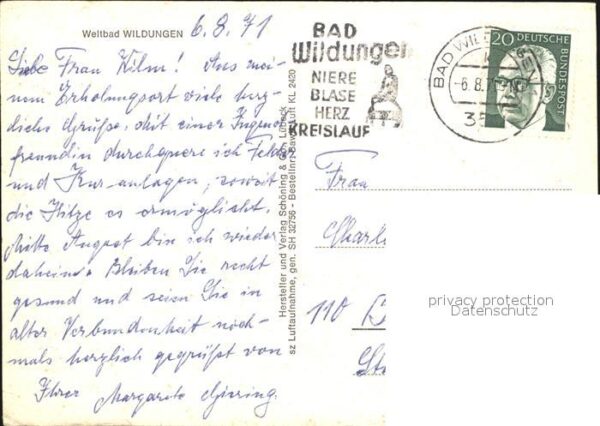 Weltbad WILDUNGEN 6.8.71
Liebe Frau Wilm! Aus mei-
nem Erholungsort viele herz-
liche Grüße. Mit einer Jugend
freundin durchquere ich Felder
und Kur-anlagen, soweit
die Hitze es ermöglicht.
Mitte August bin ich wieder
daheim. Bleiben Sie recht
gesund und seien Sie in
alter Verbundenheit noch-
mals herzlich gegrüßt von
Ihrer Margarete
Hersteller und Verlag Schöning & Co. Lübeck
sz Luftaufnahme, gen. SH 32756 - Bestellnr. Bawi Luft KL 2420
BAD
Wildungen
NIERE
BLASE
HERZ
KREISLAUF
BAD WIL
-6.8.71
35
20 DEUTSCHE
BUNDESPOST
Frau
Charl
110
privacy protection
Datenschutz